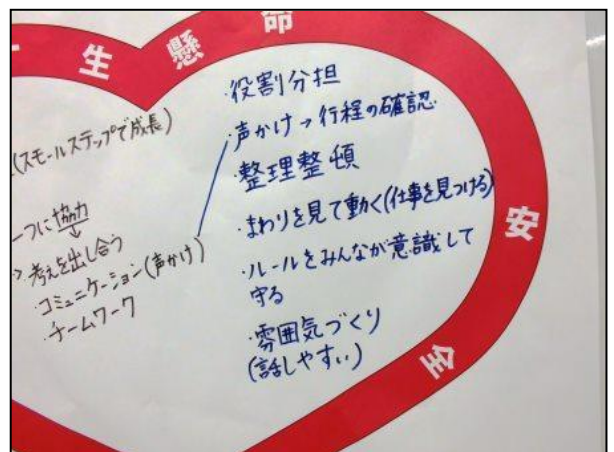 生懸命
安全
(スモールステップで成長)
一つに協力
↓
→ 考えを出し合う
・コミュニケーション(声かけ)
・チームワーク
・役割分担
・声かけ→行程の確認
・整理整頓
・まわりを見て動く(仕事を見つける)
・ルールをみんなが意識して
守る
・雰囲気づくり
(話しやすい)